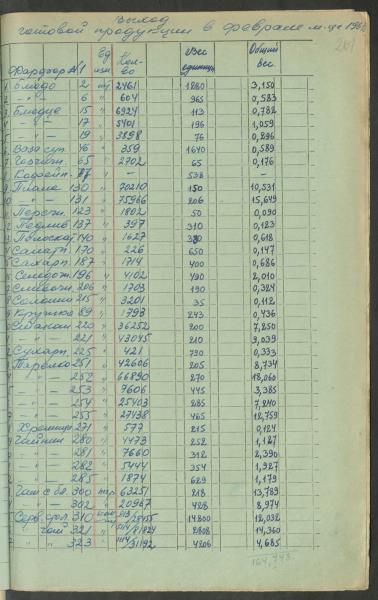 Выход
готовой продукции в феврале м-це 196
201
Фарфор №1 Ед изм Кол-во Вес единицы Общий вес
1 Блюдо 2 шт 2461 1280 3,150
2 — " — 6 " 604 965 0,583
3 Блюдце 15 " 6924 113 0,782
— " — 17 " 5401 196 1,059
— " — 19 " 3898 76 0,296
Ваза суп. 46 " 359 1640 0,589
Горчичн. 65 " 2702 65 0,176
Кофейн. 77 " — 538 —
Пиала 130 " 70210 150 10,531
— " — 131 " 75966 206 15,649
Переч. 123 " 1802 50 0,090
137 " 397 310 0,123
Полоскат 140 " 1627 380 0,618
Салатн 170 " 226 650 0,147
Сахарн. 187 " 1714 400 0,686
Селедоч. 196 " 4102 490 2,010
206 " 1703 190 0,324
Солонка 215 " 3201 35 0,112
Кружка 89 " 1793 243 0,436
220 " 36252 200 7,250
— " — 221 " 43045 210 9,039
Сухарн. 225 " 421 790 0,333
Тарелка 251 " 42606 205 8,734
— " — 252 " 66890 270 18,060
— " — 253 " 7606 445 3,385
— " — 254 " 25403 285 7,240
— " — 255 " 27438 465 12,759
Хренница 271 " 577 215 0,124
Чайник 280 " 4473 252 1,127
— " — 281 " 7660 312 2,390
— " — 282 " 5444 354 1,927
— " — 285 " 1874 629 1,179
Чаш с бл. 300 63251 218 13,789
— " — 302 " 20967 428 8,974
Серв. стол. 310 /28455 14800 12,032
чай 321 " /81824 2808 14,360
" 323 " 1114/31192 4206 4,685
164,743